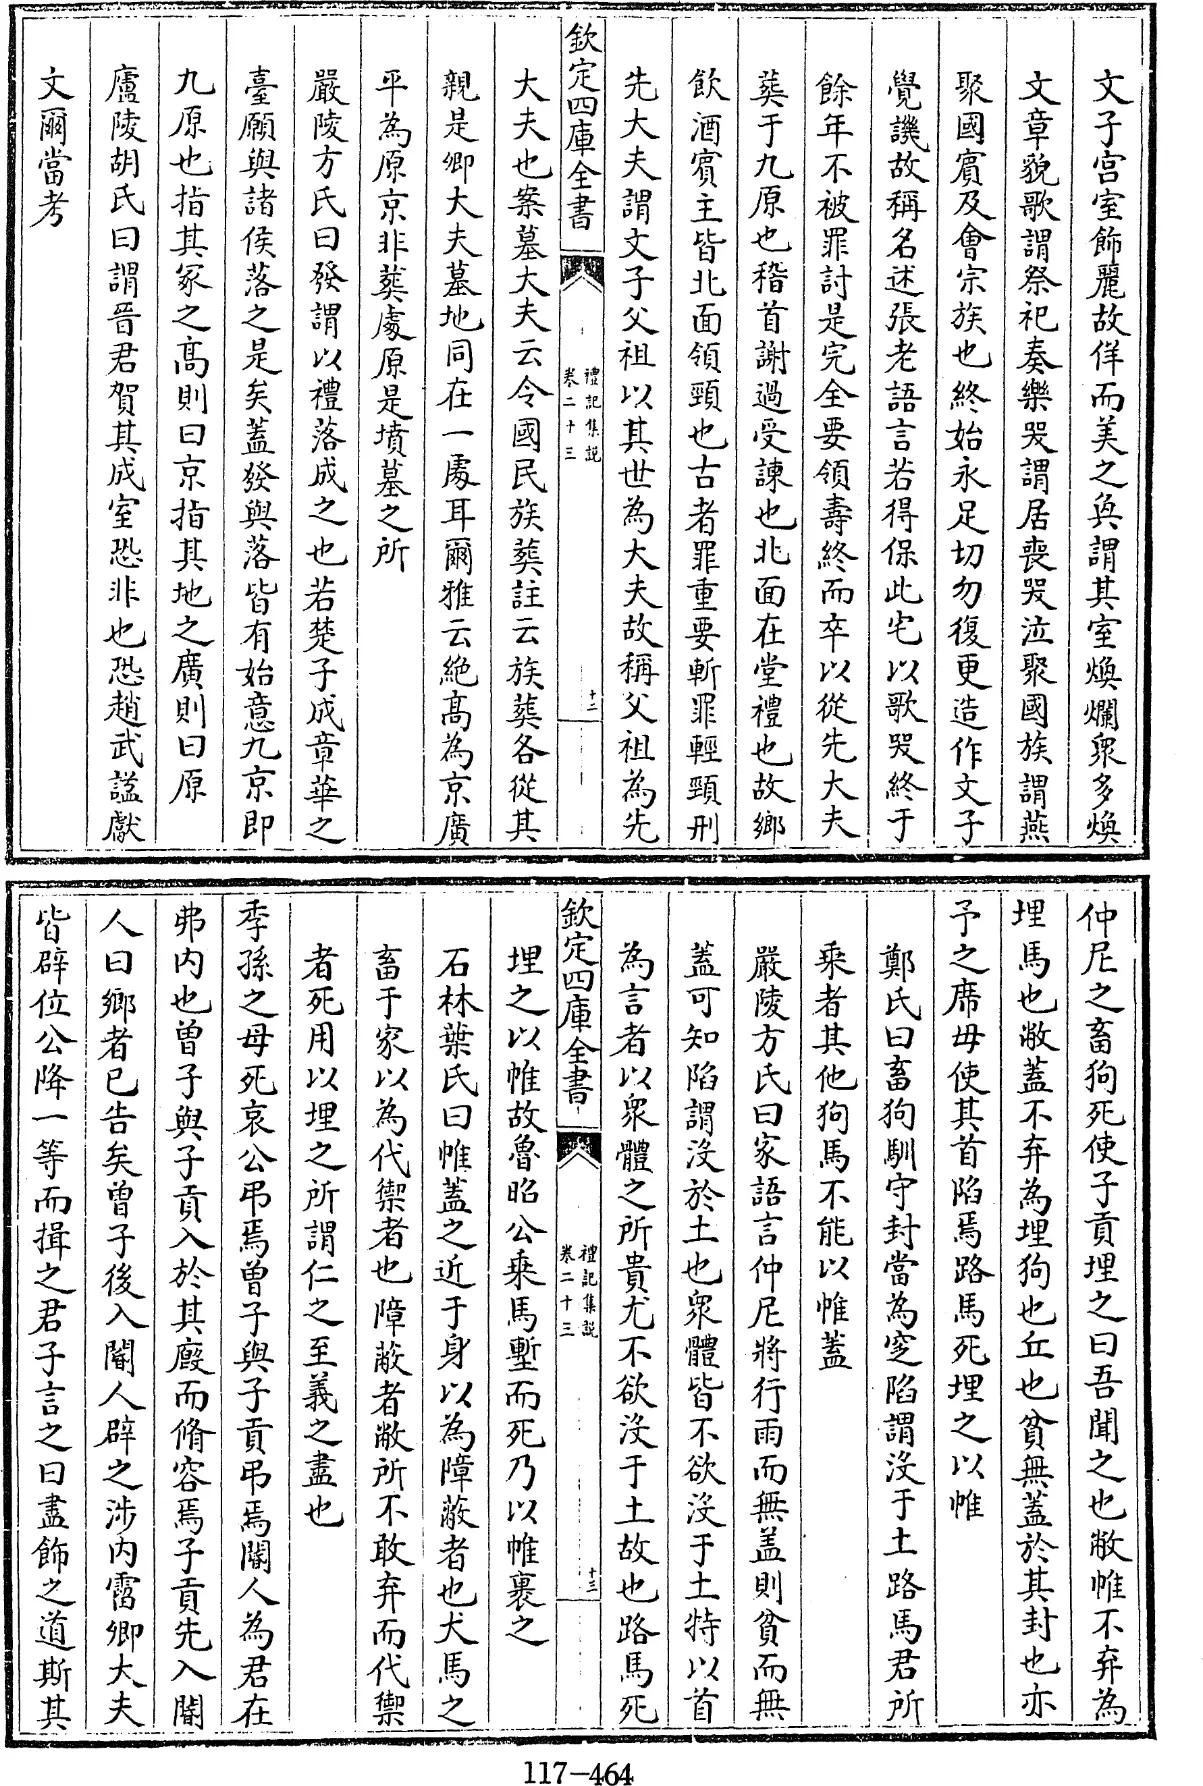 文子宫室飾麗故佯而美之奐謂其室煥爛衆多煥
文章貌歌謂祭祀奏樂哭謂居喪哭泣聚國族謂燕
聚國賓及會宗族也終始永足切勿復更造作文子
覺譏故稱名述張老語言若得保此宅以歌哭終于
餘年不被罪討是完全要領壽終而卒以從先大夫
葬于九原也稽首謝過受諫也北面在堂禮也故鄉
飲酒賓主皆北面領頸也古者罪重要斬罪輕頸刑
先大夫謂文子父祖以其世為大夫故稱父祖為先
欽定四庫全書
禮記集説
卷二十三
十二
大夫也案墓大夫云令國民族葬註云族葬各從其
親是卿大夫墓地同在一處耳爾雅云絶髙為京廣
平為原京非葬處原是墳墓之所
嚴陵方氏曰發謂以禮落成之也若楚子成章華之
臺願與諸侯落之是矣蓋發與落皆有始意九京即
九原也指其冢之髙則曰京指其地之廣則曰原
廬陵胡氏曰謂晉君賀其成室恐非也恐趙武諡獻
文爾當考
仲尼之畜狗死使子貢埋之曰吾聞之也敝帷不弃為
埋馬也敝蓋不弃為埋狗也丘也貧無蓋於其封也亦
予之席毋使其首陷焉路馬死埋之以帷
鄭氏曰畜狗馴守封當為窆陷謂沒于土路馬君所
乘者其他狗馬不能以帷蓋
嚴陵方氏曰家語言仲尼將行雨而無盖則貧而無
蓋可知陷謂沒於土也衆體皆不欲沒于土特以首
為言者以衆體之所貴尤不欲沒于土故也路馬死
欽定四庫全書
禮記集説
卷二十三
十三
埋之以帷故魯昭公乘馬塹而死乃以帷裹之
石林葉氏曰帷蓋之近于身以為障蔽者也犬馬之
畜于家以為代禦者也障蔽者敝所不敢弃而代禦
者死用以埋之所謂仁之至義之盡也
季孫之母死哀公弔焉曾子與子貢弔焉閽人為君在
弗内也曾子與子貢入於其廄而脩容焉子貢先入閽
人曰鄉者已告矣曾子後入閽人辟之涉内霤卿大夫
皆辟位公降一等而揖之君子言之曰盡飾之道斯其
117-464